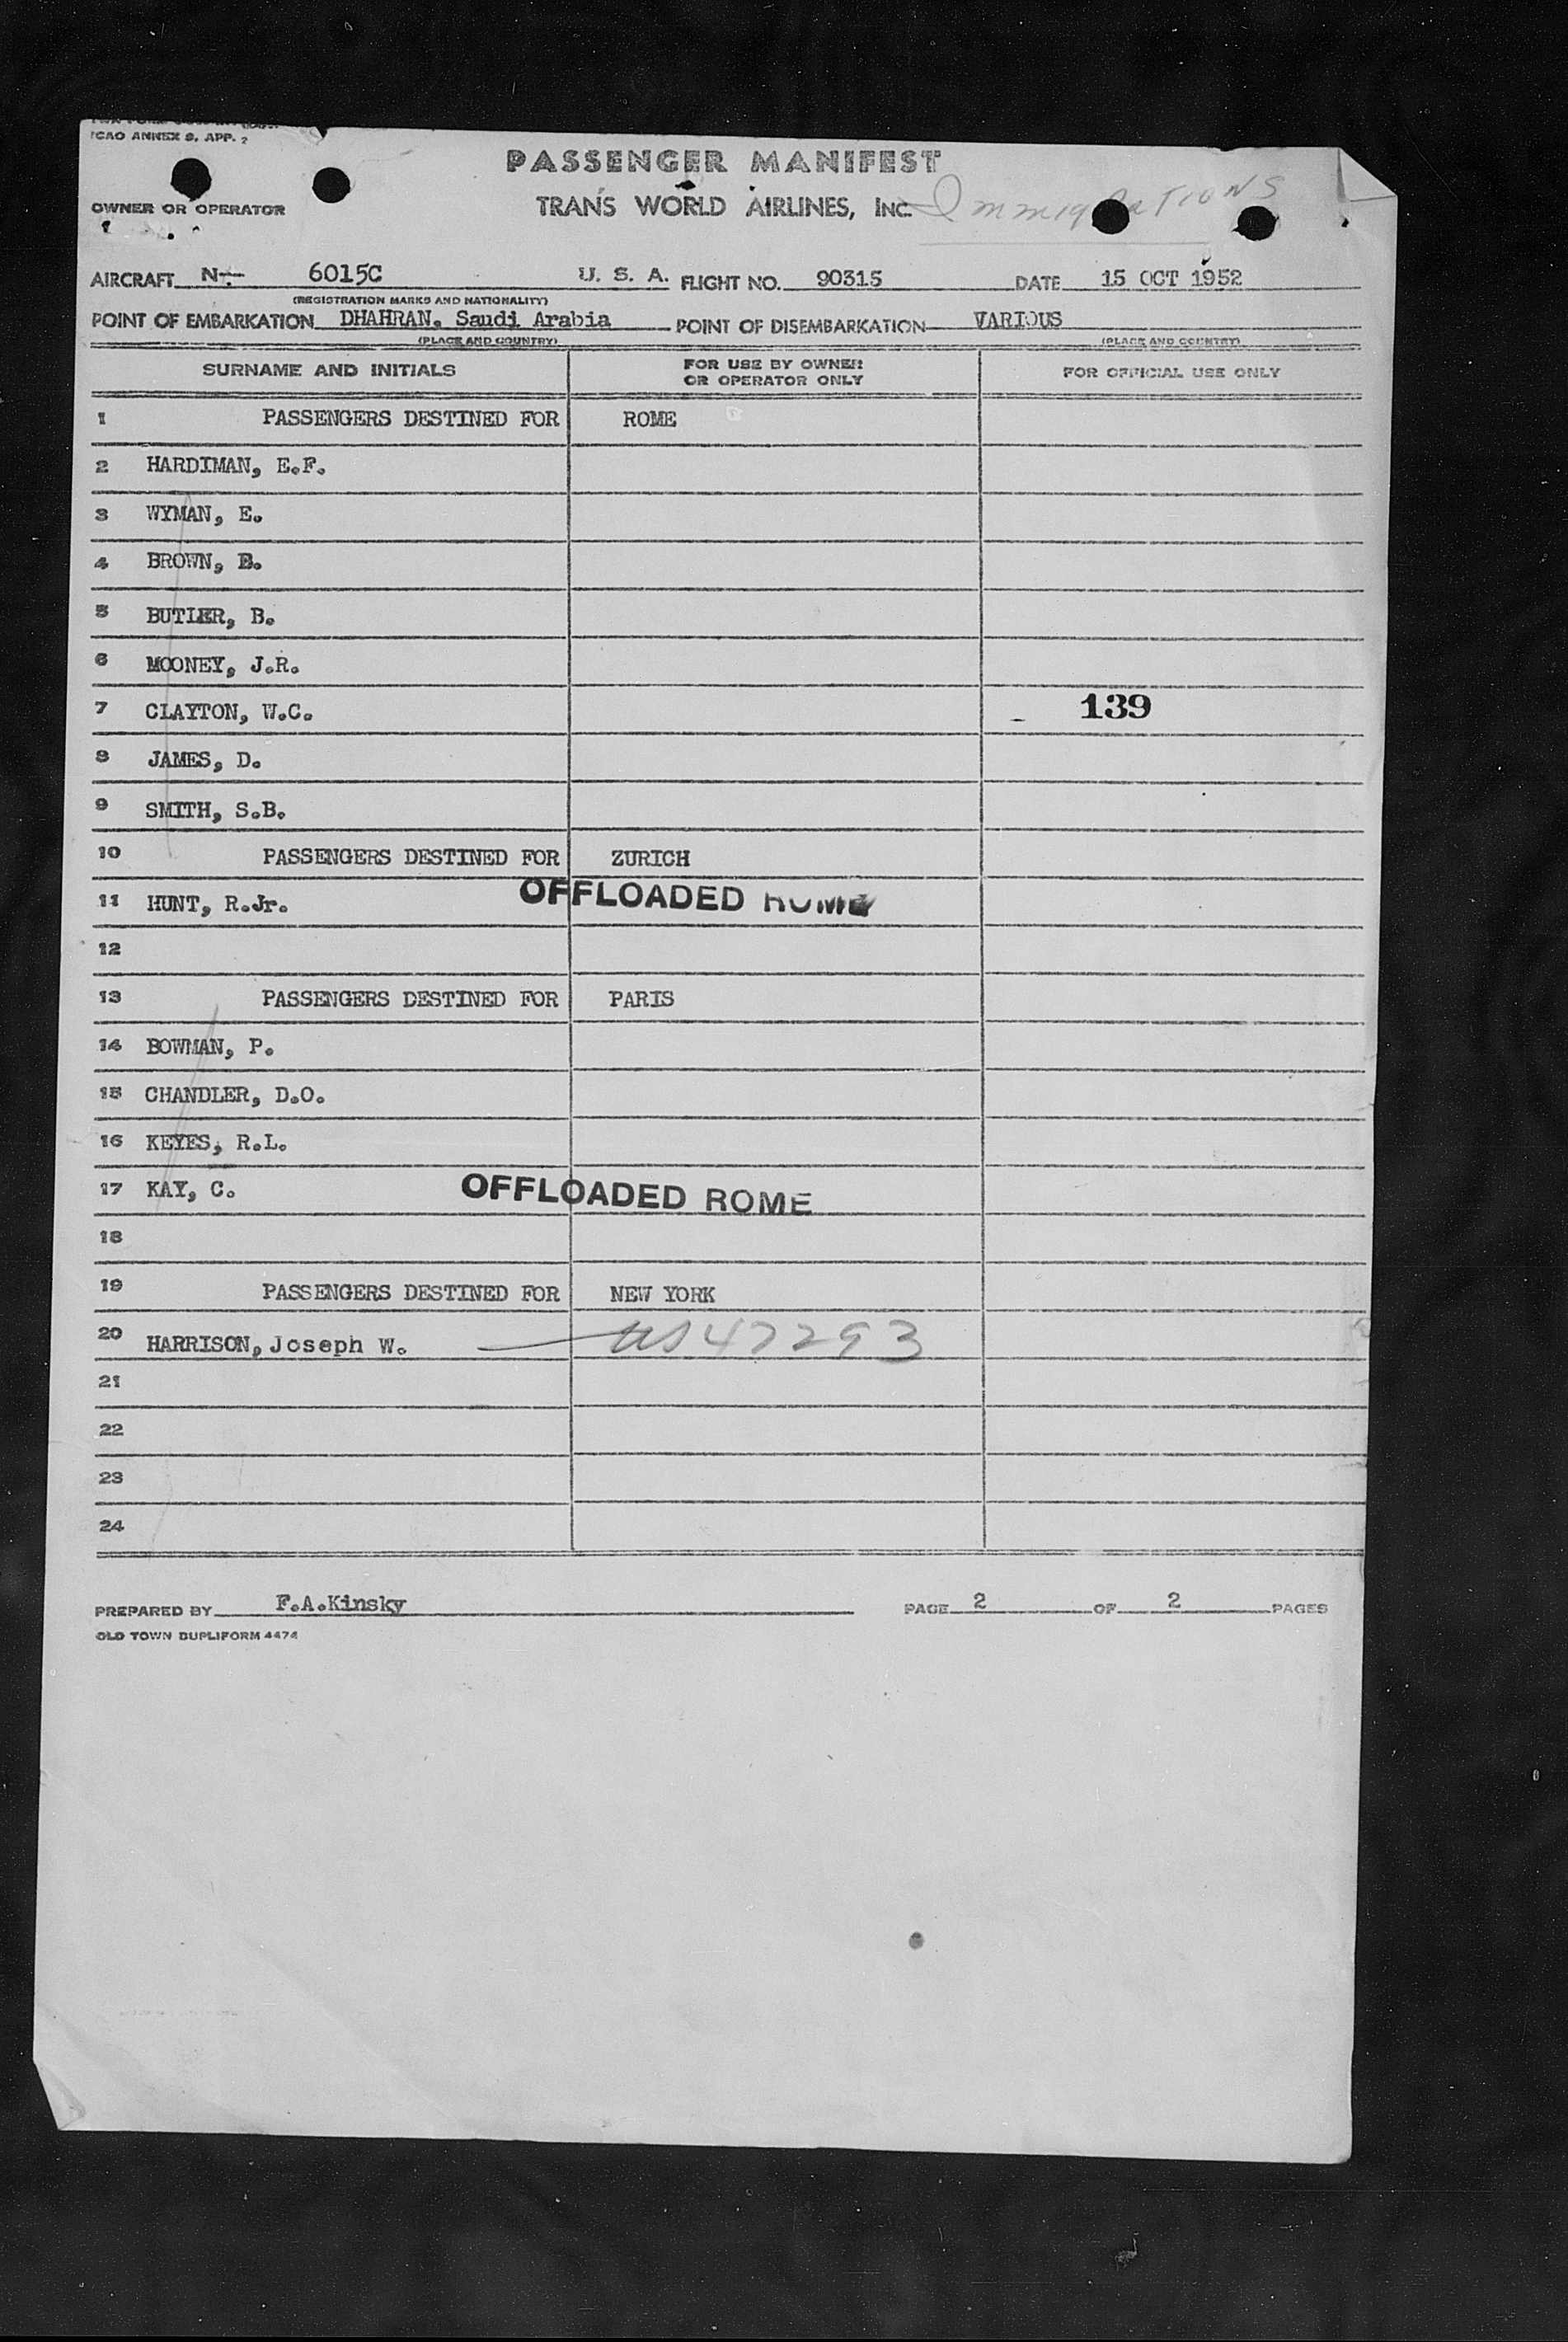 ICAO ANNEX 9, APP. 2
PASSENGER MANIFEST
OWNER OR OPERATOR
TRANS WORLD AIRLINES, INC.
Immigrations
AIRCRAFT N- 6015C U. S. A. FLIGHT NO. 90315 DATE 15 OCT 1952
(REGISTRATION MARKS AND NATIONALITY)
POINT OF EMBARKATION DHAHRAN, Saudi Arabia POINT OF DISEMBARKATION VARIOUS
(PLACE AND COUNTRY) (PLACE AND COUNTRY)
SURNAME AND INITIALS FOR USE BY OWNER OR OPERATOR ONLY FOR OFFICIAL USE ONLY
1 PASSENGERS DESTINED FOR ROME
2 HARDIMAN, E.F.
3 WYMAN, E.
4 BROWN, B.
5 BUTLER, B.
6 MOONEY, J.R.
7 CLAYTON, W.C. 139
8 JAMES, D.
9 SMITH, S.B.
10 PASSENGERS DESTINED FOR ZURICH
11 HUNT, R.Jr. OFFLOADED ROME
12
13 PASSENGERS DESTINED FOR PARIS
14 BOWMAN, P.
15 CHANDLER, D.O.
16 KEYES, R.L.
17 KAY, C. OFFLOADED ROME
18
19 PASSENGERS DESTINED FOR NEW YORK
20 HARRISON, Joseph W. US 47293
21
22
23
24
PREPARED BY F.A.Kinsky PAGE 2 OF 2 PAGES
OLD TOWN DUPLIFORM 4474